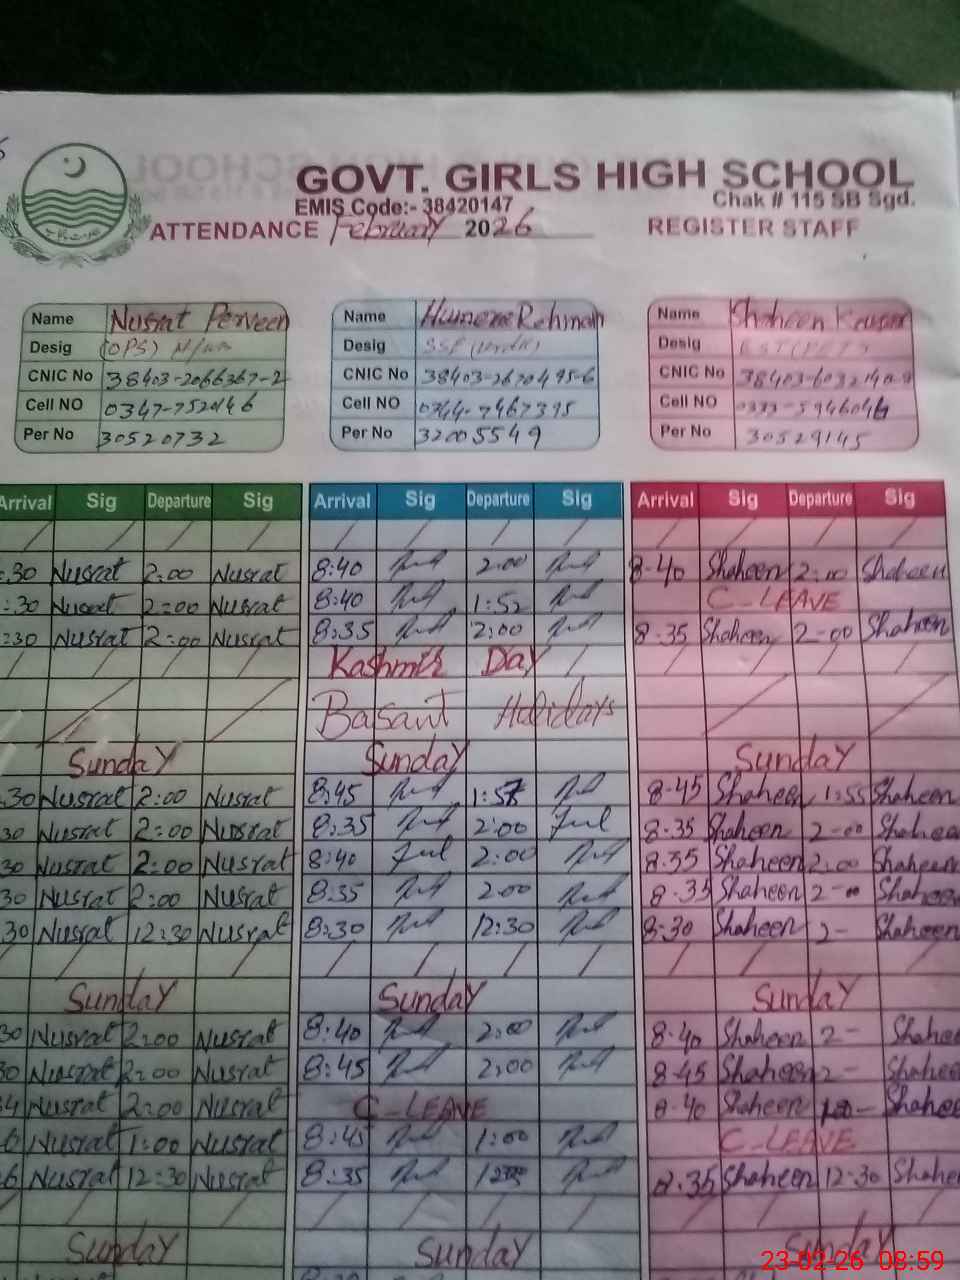 GOVT. GIRLS HIGH SCHOOL
EMIS Code:- 38420147 Chak # 115 SB Sgd.
ATTENDANCE February 2026 REGISTER STAFF
Name Nusrat Perveen Name Humera Rehman Name Shaheen Kausar
Desig (OPS) Desig Desig
CNIC No 38403-2066367-2 CNIC No 38403-2670495-6 CNIC No
Cell NO Cell NO Cell NO
Per No 30520732 Per No 32005549 Per No 30529145
Arrival Sig Departure Sig Arrival Sig Departure Sig Arrival Sig Departure Sig
:30 Nusrat 2:00 Nusrat 8:40 2:00 8-40 Shaheen 2:00 Shaheen
:30 Nusrat 2:00 Nusrat 8:40 1:52 C-LEAVE
:30 Nusrat 2:00 Nusrat 8:35 2:00 8-35 Shaheen 2-00 Shaheen
Kashmir Day
Basant Holidays
Sunday Sunday Sunday
.30 Nusrat 2:00 Nusrat 8:45 1:57 8-45 Shaheen 1:55 Shaheen
30 Nusrat 2:00 Nusrat 8:35 2:00 8-35 Shaheen 2-00 Shahee
30 Nusrat 2:00 Nusrat 8:40 2:00 8.35 Shaheen 2:00 Shaheen
30 Nusrat 2:00 Nusrat 8:35 2:00 8-35 Shaheen 2-00 Shaheen
30 Nusrat 12:30 Nusrat 8:30 12:30 8-30 Shaheen 2- Shaheen
Sunday Sunday Sunday
30 Nusrat 2:00 Nusrat 8:40 2:00 8-40 Shaheen 2- Shahee
30 Nusrat 2:00 Nusrat 8:45 2:00 8-45 Shaheen 2- Shahee
Nusrat 2:00 Nusrat C-LEAVE 8-40 Shaheen Shahee
Nusrat 1:00 Nusrat 8:45 1:00 C-LEAVE
Nusrat 12:30 Nusrat 8:35 8.35 Shaheen 12-30 Shahee
Sunday Sunday Sunday
23-02-26 08:59